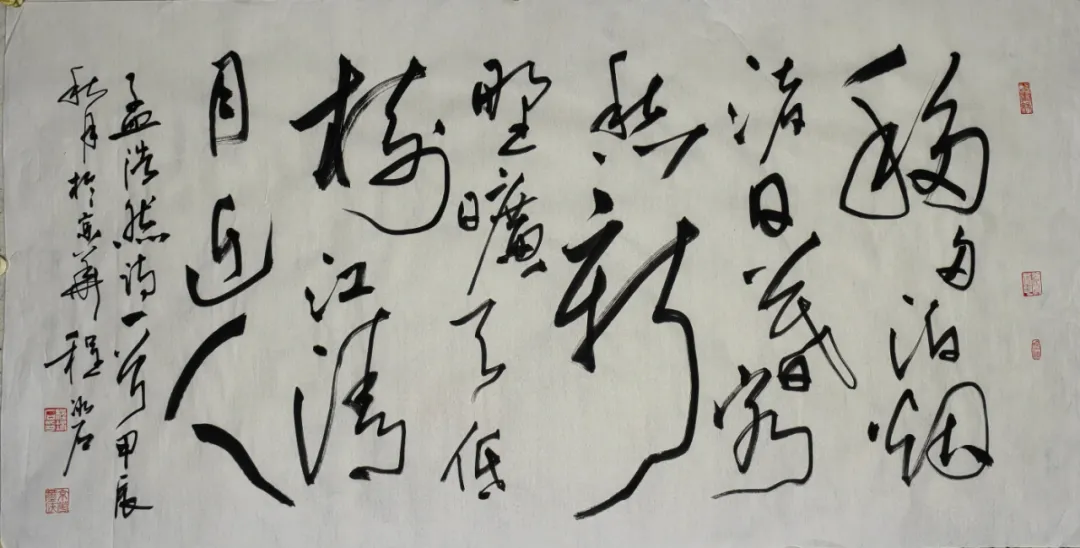 移舟泊烟
渚日暮客
愁新
野曠天低
樹江清
月近人
孟浩然诗一首甲辰
秋月於京華程冰石